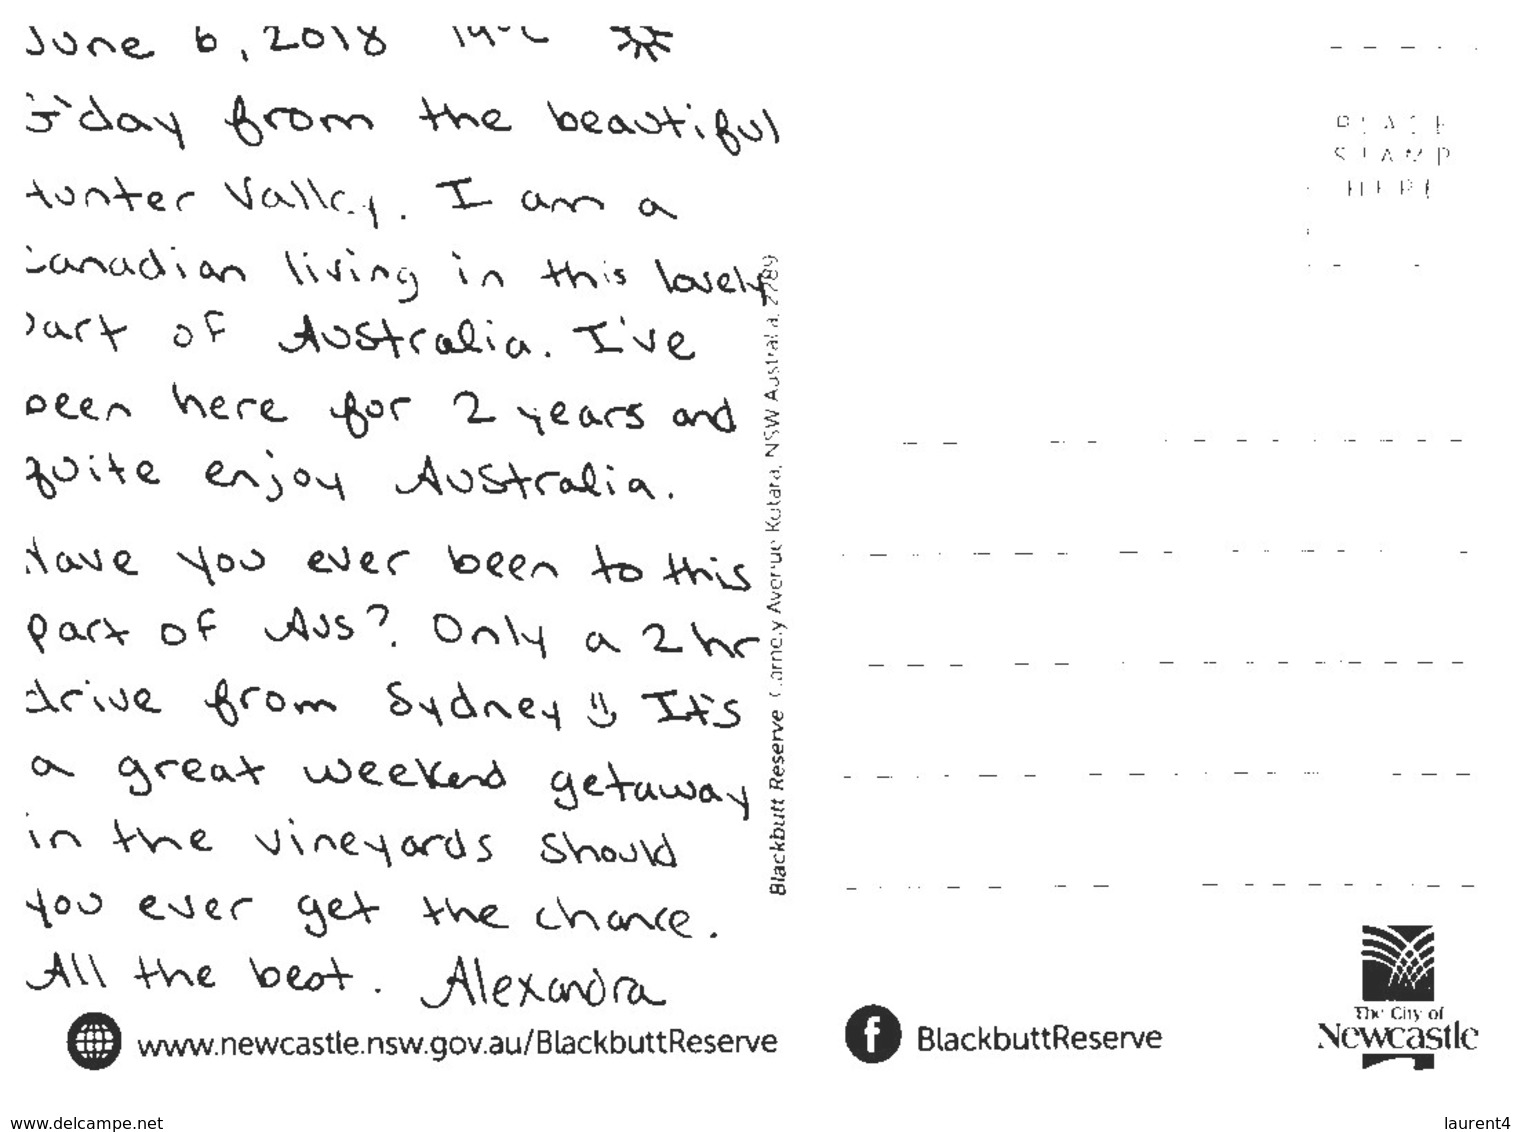 June 6, 2018 14°C
G'day from the beautiful
Hunter Valley. I am a
Canadian living in this lovely
part of Australia. I've
been here for 2 years and
quite enjoy Australia.
Have you ever been to this
part of Aus? Only a 2 hr
drive from Sydney It's
a great weekend getaway
in the vineyards should
you ever get the chance.
All the best. Alexandra
www.newcastle.nsw.gov.au/BlackbuttReserve
Blackbutt Reserve Carnley Avenue Kotara, NSW Australia, 2289
PLACE
STAMP
HERE
BlackbuttReserve
The City of
Newcastle
www.delcampe.net
laurent4